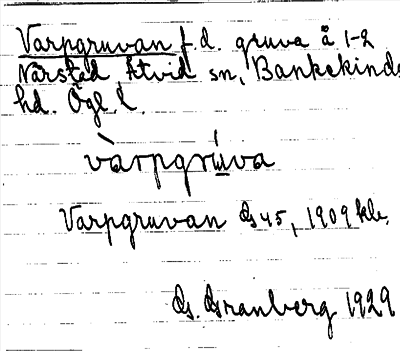 Varpgruvan f.d. gruva å 1-2
Närstad Åtvid sn, Bankekinds
hd. Ögl. l.
vàrpgrúva
Varpgruvan Gs 45, 1909 kb.
G. Granberg 1929